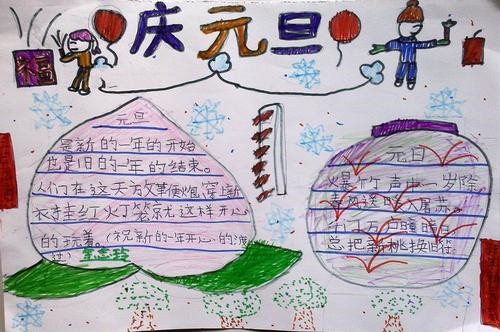 福
庆元旦
元旦
是新的一年的开始
也是旧的一年的结束。
人们在这天放革使炮穿上新
衣挂红灯笼就这样开心
的玩着。(祝新的一年开心的渡
过)
元旦
爆竹声中一岁除
春风送暖入屠苏。
千门万户曈曈日
总把新桃换旧符